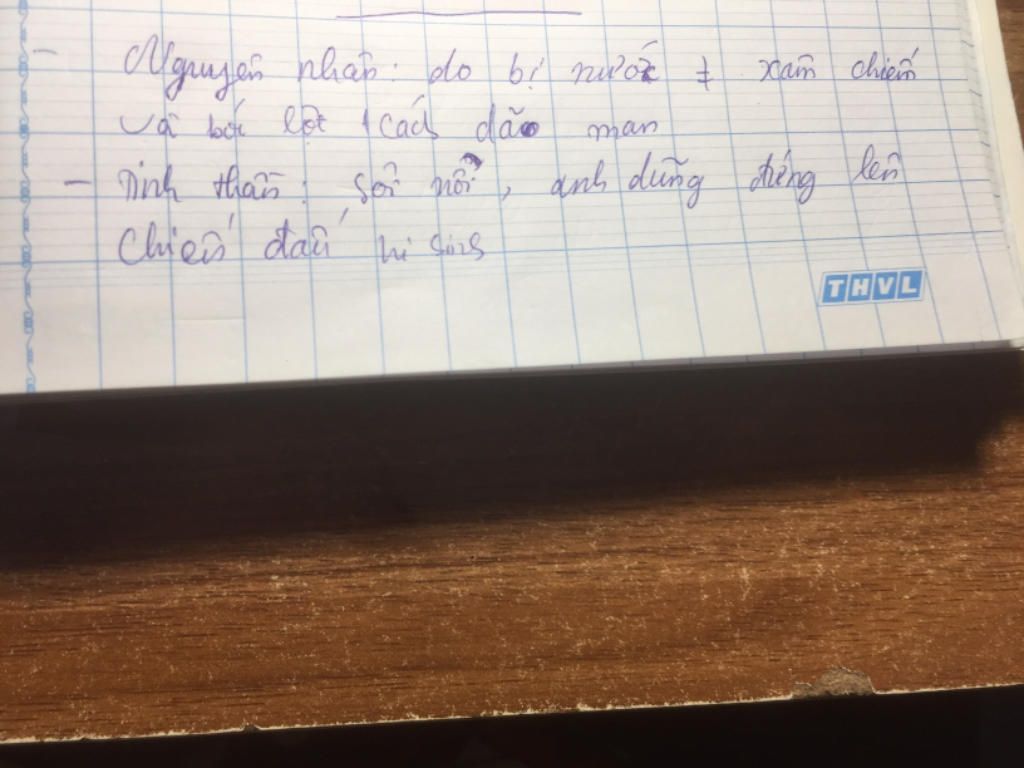 - Nguyên nhân: do bị nước ≠ xâm chiến
và bóc lột 1 cách dão man
- Tinh thần: sôi nổi, anh dũng đứng lên
Chiến đấu hi sins
THVL